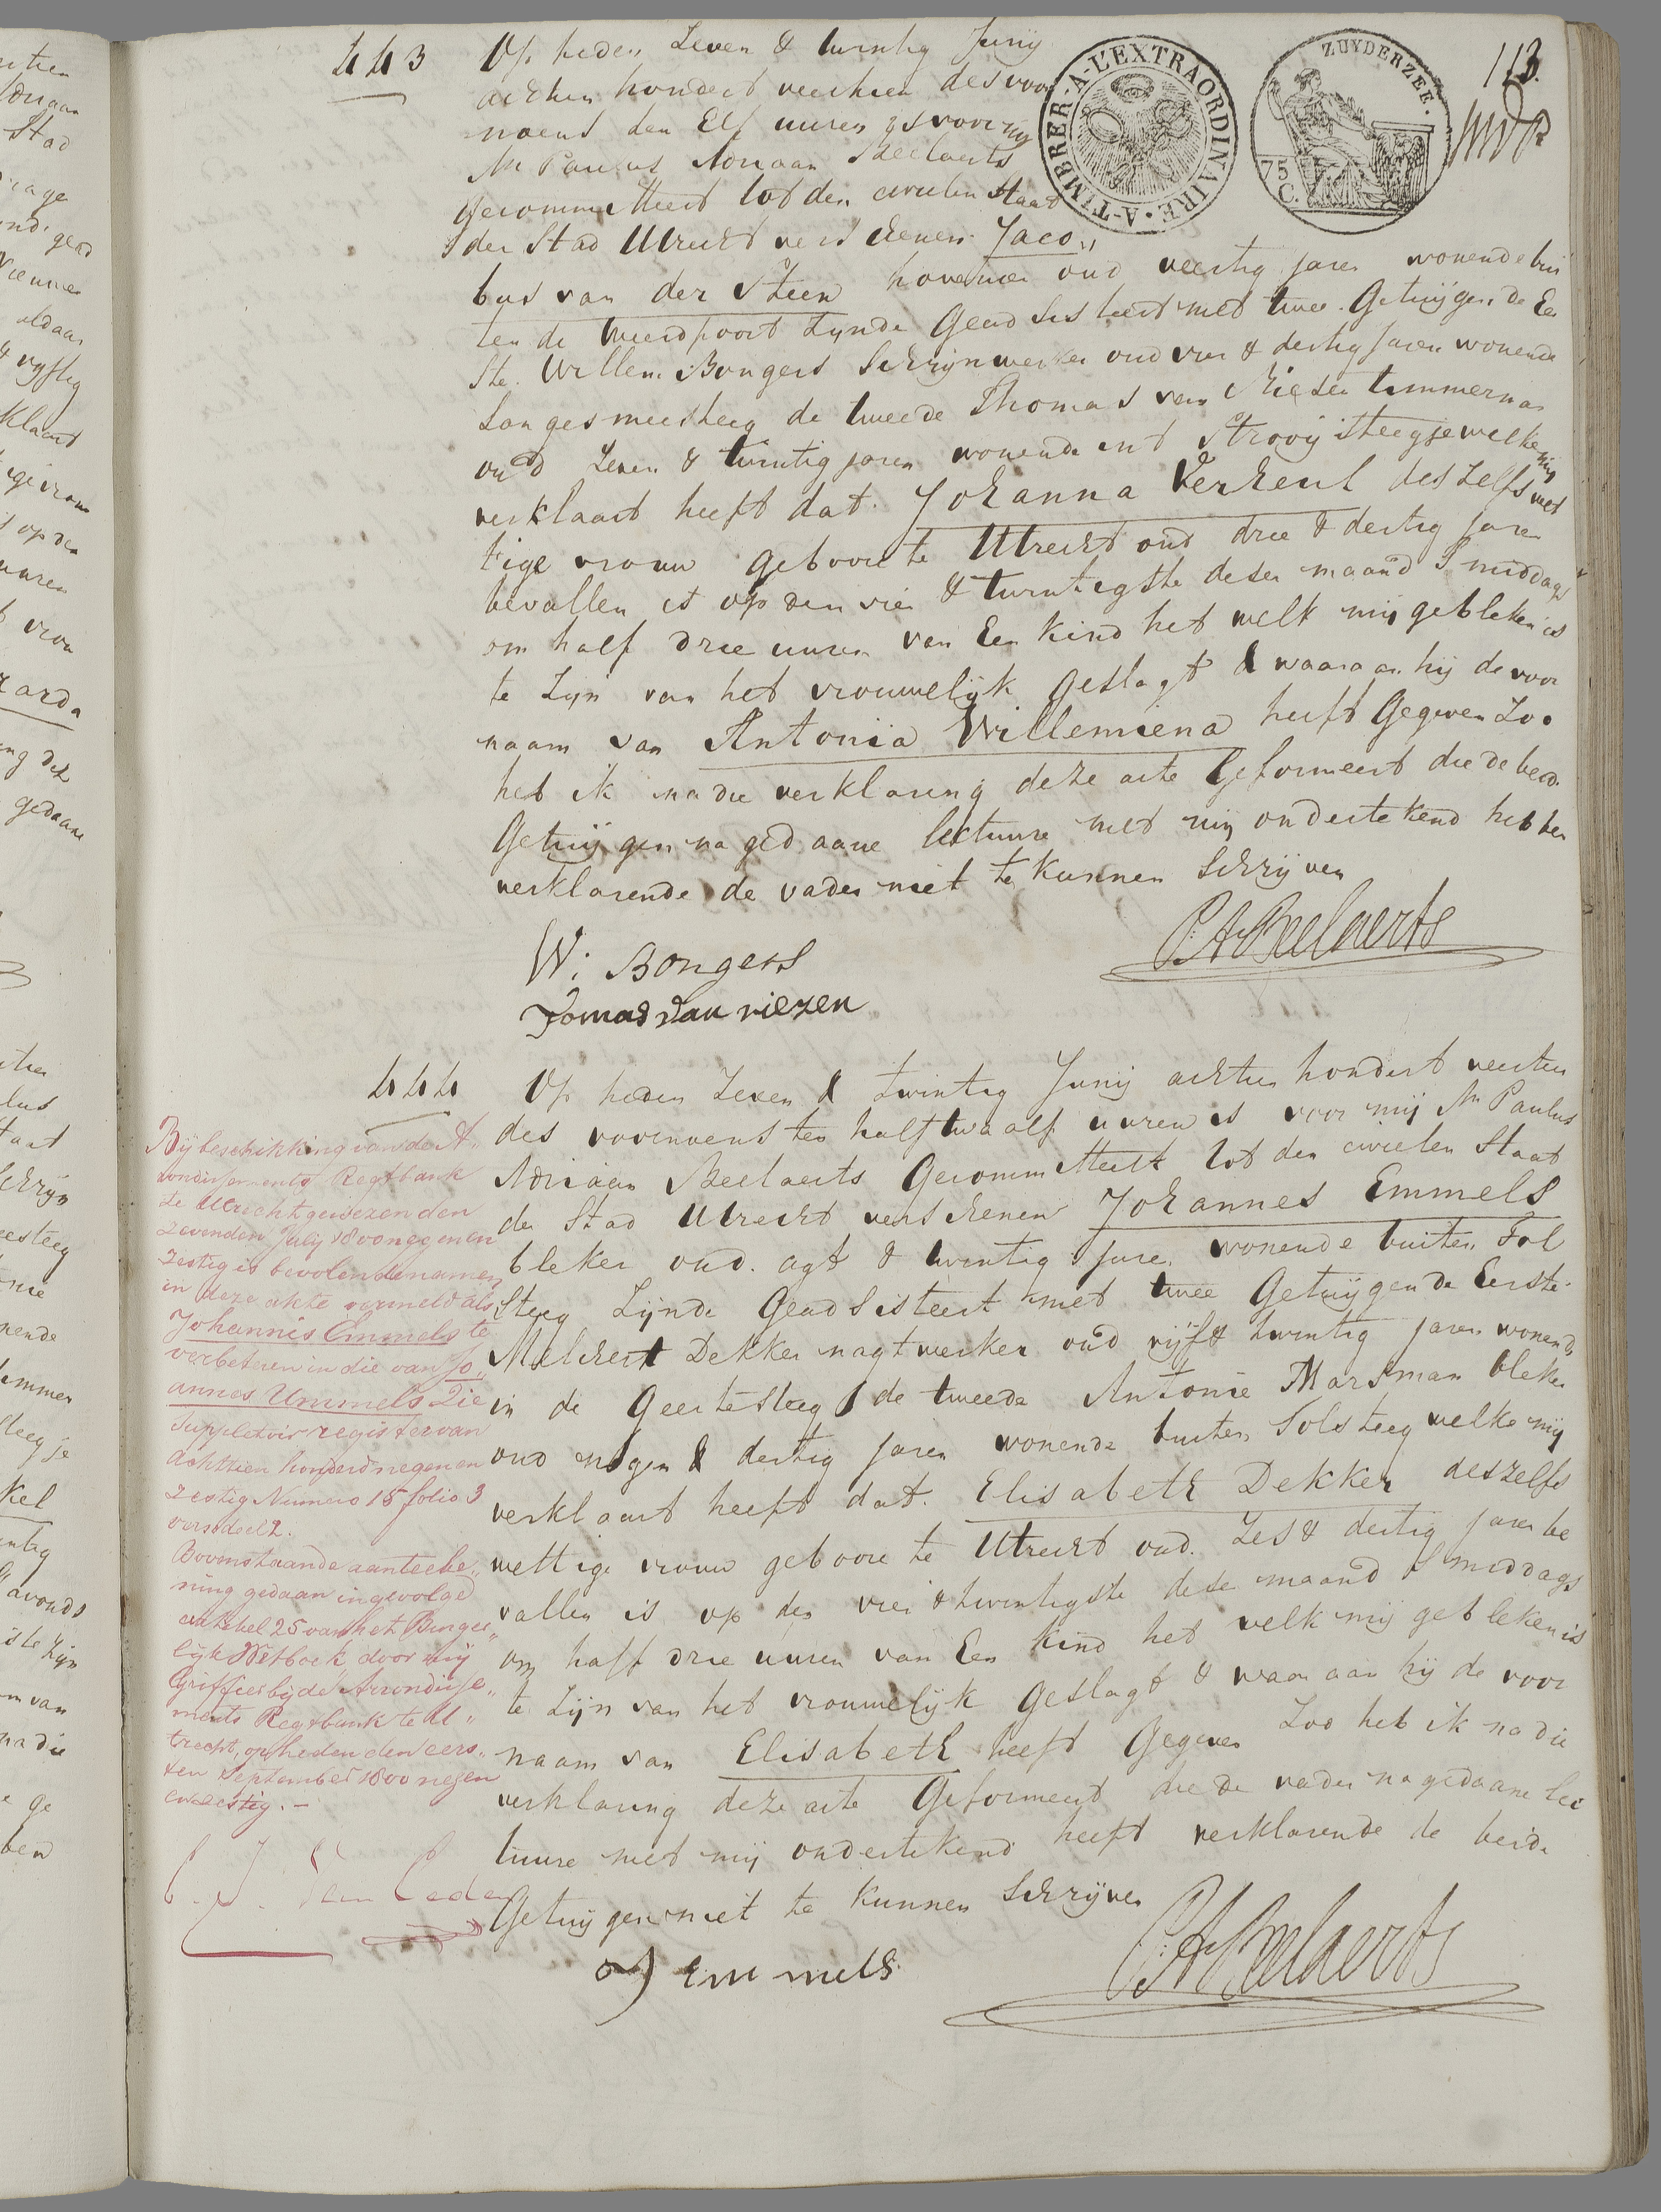 113.
A-TIMBRER-A-L'EXTRAORDINAIRE
ZUYDERZEE.
75
C.
443
Op heden Zeven & twintig Junij
achtien hondert veertien des voor
noens den Elf uuren is voor mij
Mr Paulus Adriaan Beelaerts
Gecommitteert tot den civielen Staat
der Stad Utrecht verschenen Jaco„
bus van der Steen hovenier oud veertig jaren wonende bui
ten de Weerdpoort Zynde Geadsisteert met twee Getuijgen de Eer
ste Willem Bongers Schrijnwerker oud vier & dertig Jaren wonende
Langesmeesteeg de tweede Thomas van Riezen timmerman
oud Zeven & twintig jaren wonende int Strooijsteegje welke mij
verklaart heeft dat Johanna Verkeul deszelfs wet
tige vrouw geboore te Utrecht oud drie & dertig jaren
bevallen is op den vier & twintigste dezer maand S middags
om half drie uuren van Een Kind het welk mij gebleken is
te Zijn van het vrouwelijk Geslagt & waaraan hij de voor
naam van Antonia Willemiena heeft Gegeven Zoo
heb ik na die verklaring deze acte Geformeert die de beid.
Getuijgen na gedaane lectuure met mij ondertekend hebben
verklarende de vader niet te Kunnen Schrijven
P.A. Beelaerts
W: Bongers
Tomas van riezen
444
Op heden Zeven & twintig Junij achtien hondert veertien
des voornoens ten half twaalf uuren is voor mij Mr Paulus
Adriaan Beelaerts Gecommitteert tot den civielen Staat
der Stad Utrecht verschenen Johannes Emmels
bleker oud agt & twintig Jaren wonende buiten Tol
Steeg Zijnde Geadsisteert met twee Getuijgen de Eerste
Melchert Dekker nagtwerker oud vijf & twintig jaren wonende
in de Geertesteeg & de tweede Antonie Marsman bleker
oud negen & dertig jaren wonende buiten Tolsteeg welke mij
verklaart heeft dat Elisabeth Dekker deszelfs
wettige vrouw geboore te Utrecht oud Zes & dertig jaren be
vallen is op den vier & twintigste deze maand S middags
om half drie uuren van Een Kind het welk mij gebleken is
te Zijn van het vrouwelijk Geslagt & waar aan hij de voor
naam van Elisabeth heeft Gegeven Zoo heb ik na die
verklaring deze acte Geformeert die de vader na gedaane lec
tuure met mij ondertekend heeft verklarende de beide
Getuijgen niet te Kunnen Schrijven
P.A. Beelaerts
Emmels
Bij beschikking van de Ar„
rondissements Regtbank
te Utrecht gewezen den
zevenden July 1800 negen en
zestig is bevolen de namen
in deze akte vermeld als
Johannis Emmels te
verbeteren in die van Jo„
annes Ummels Zie
Suppletoir register van
achttien honderd negen en
zestig Numero 15 folio 3
verso deel 2.
Bovenstaande aanteeke„
ning gedaan ingevolge
artikel 25 van het Burger„
lijk Wetboek door mij
Griffier bij de Arrondisse„
ments Regtbank te U„
trecht, op heden den eers„
ten September 1800 negen
en zestig. –